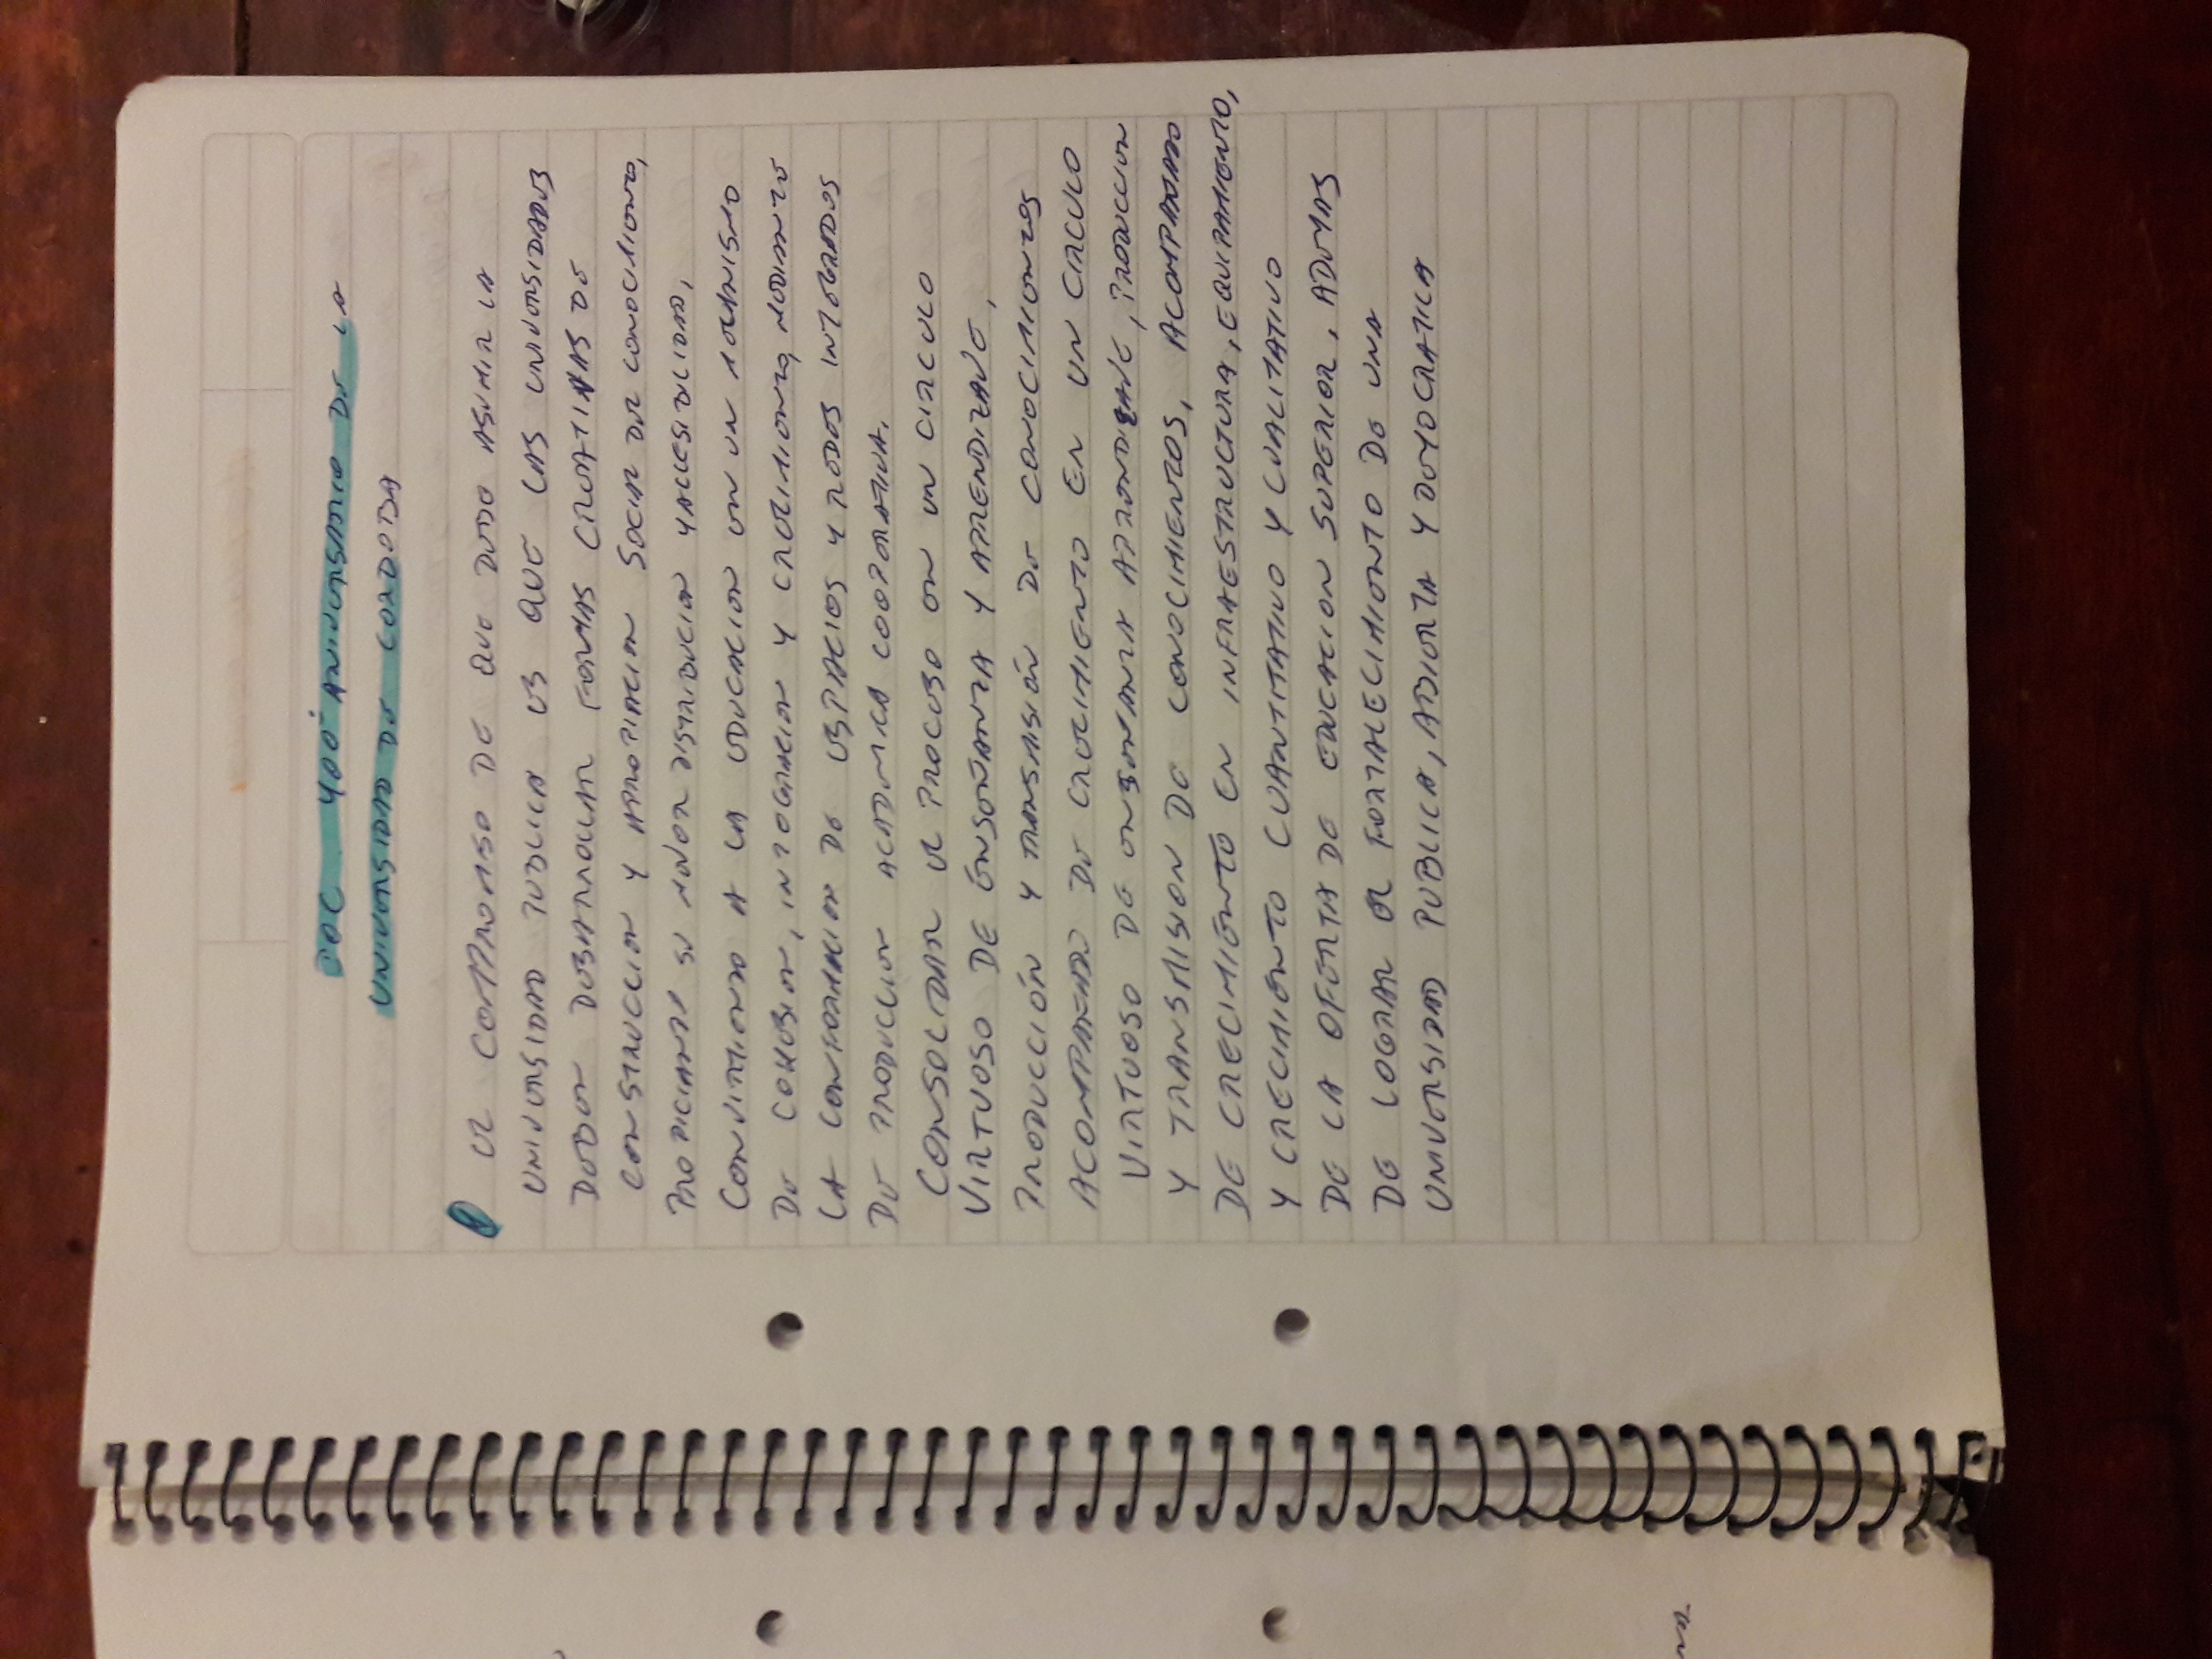 DOC. 400° ANIVERSARIO DE LA
UNIVERSIDAD DE CORDOBA
1 EL COMPROMISO DE QUE DEBE ASUMIR LA
UNIVERSIDAD PUBLICA ES QUE LAS UNIVERSIDADES
DEBEN DESARROLLAR FORMAS CREATIVAS DE
CONSTRUCCION Y APROPIACION SOCIAL DEL CONOCIMIENTO,
PROPICIANDO SU MEJOR DISTRIBUCION Y ACCESIBILIDAD,
CONVIRTIENDO A LA EDUCACION EN UN MECANISMO
DE COHESION, INTEGRACION Y CRECIMIENTO, MEDIANTE
LA CONFORMACION DE ESPACIOS Y REDES INTEGRADOS
DE PRODUCCION ACADEMICA COOPERATIVA.
CONSOLIDAR EL PROCESO EN UN CIRCULO
VIRTUOSO DE ENSEÑANZA Y APRENDIZAJE,
PRODUCCIÓN Y TRANSMISIÓN DE CONOCIMIENTOS
ACOMPAÑADO DE CRECIMIENTO EN UN CIRCULO
VIRTUOSO DE ENSEÑANZA APRENDIZAJE, PRODUCCION
Y TRANSMISION DE CONOCIMIENTOS, ACOMPAÑADO
DE CRECIMIENTO EN INFRAESTRUCTURA, EQUIPAMIENTO,
Y CRECIMIENTO CUANTITATIVO Y CUALITATIVO
DE LA OFERTA DE EDUCACION SUPERIOR, ADEMAS
DE LOGRAR EL FORTALECIMIENTO DE UNA
UNIVERSIDAD PUBLICA, ABIERTA Y DEMOCRATICA